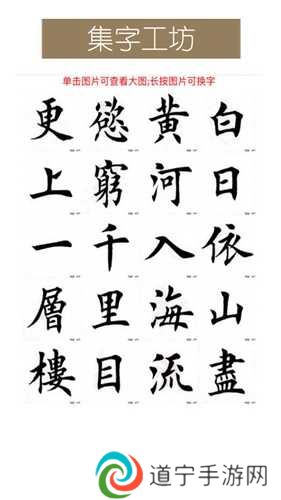 集字工坊
单击图片可查看大图;长按图片可换字
白日依山盡
黄河入海流
慾窮千里目
更上一層樓
道宁手游网